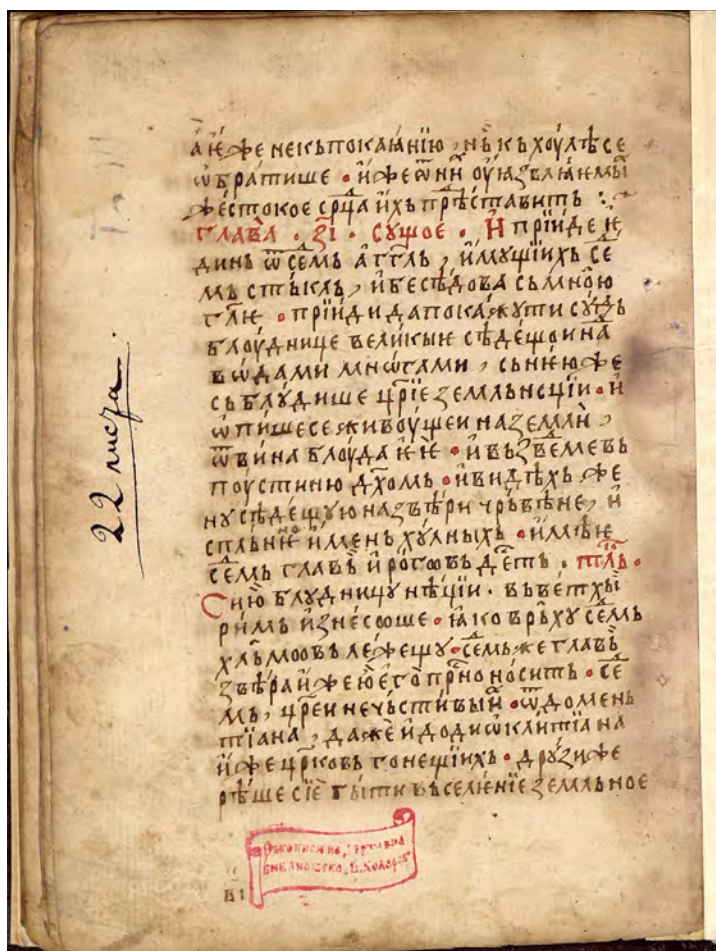 а҆ ѥ҆же не къ покааⷩ҇нїю , нь къ хоулѣ се
ѡ҆братише • и҆же ѿ ни́ оу҆ꙗзвлꙗѥмы
жестокоє срⷣца и҆хь прѣⷣставить :
глава̀ • з҃і • сущоє • И҆ прїиде ѥ҆
динь ѿ сеⷣмь а҆гг҃ль , и҆мущїихь сеⷣ
мь стькль , и҆ бесѣдова сь мною
гл҃ѥ • прїиди да покажу ти судь
блоуднице великыѥ сѣдещои на
вѡдами мнѡгами , сь нѥю же
сьблудише цр҃їе земльнсции • и҆
ѡ҆пише се живоущеи на земли ,
ѿ вина блоуда ѥ҆ѥ • и҆ вьзвеⷣ ме вь
поустиню дх҃омь • и҆ видѣхь же
ну сѣдещую на звѣри чрьвѣне , и҆
спльнѥно и҆мень хулныхь • и҆мѣѥ
сеⷣмь главь и҆ рогѡвь деⷭ҇ть • тль •
Сию блудницу нѣции • вь ветхы
римь и҆знесоше • ꙗко врьху сеⷣмь
хльмовь лежещу • сеⷣмь же главь
звѣра и҆же ю҆ его прⷭ҇но носить • сеⷣ
мь , цр҃еи нечьстивыи • ѿ домень
тїана , даже и҆ до диѡклитїана
и҆же цр҃ковь гонещїихь • друзи же
рѣше сїе быти вьселѥнїе земльноє
22 листа
библиотека „В. Коларов“
в҃і